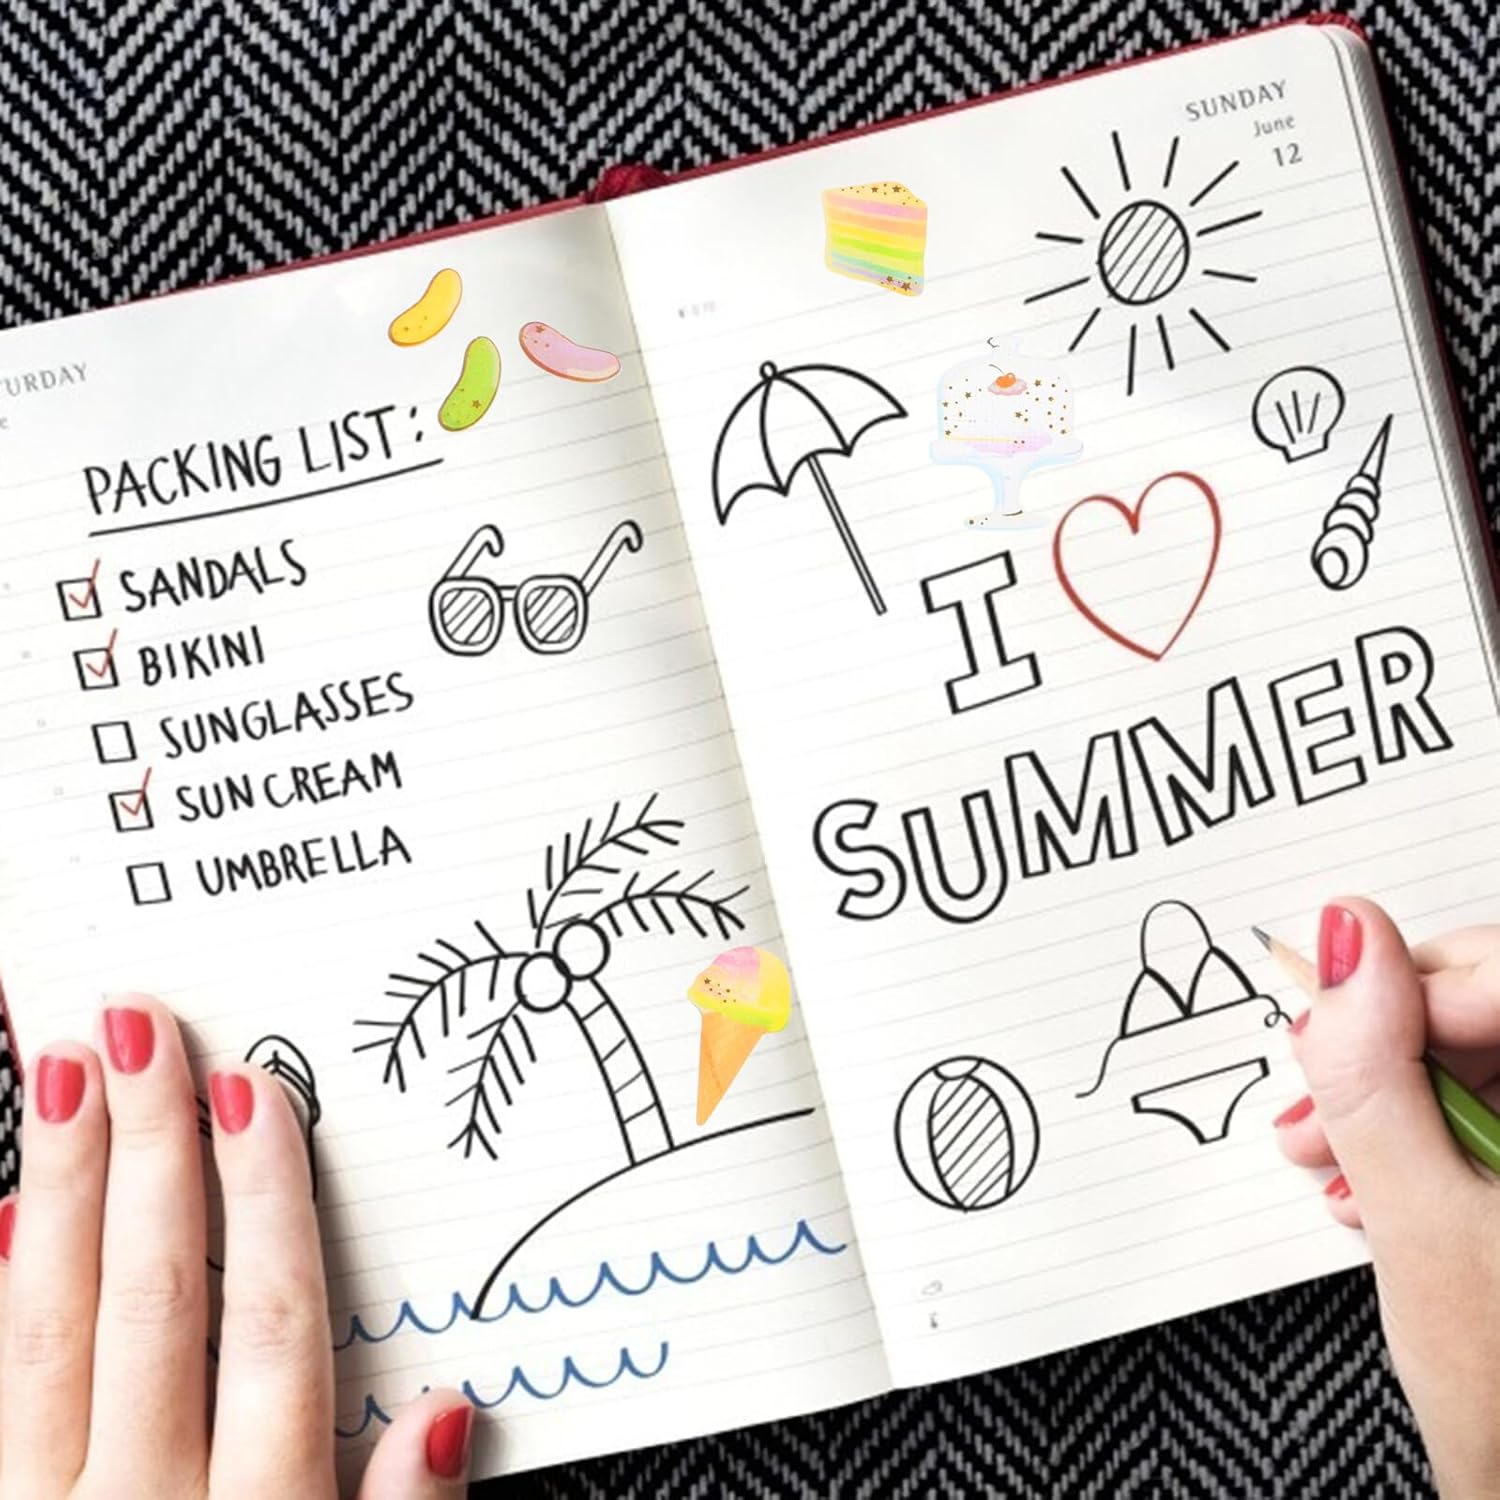 TURDAY
e
PACKING LIST:
SANDALS
BIKINI
SUNGLASSES
SUN CREAM
UMBRELLA
SUNDAY
June
12
I
SUMMER